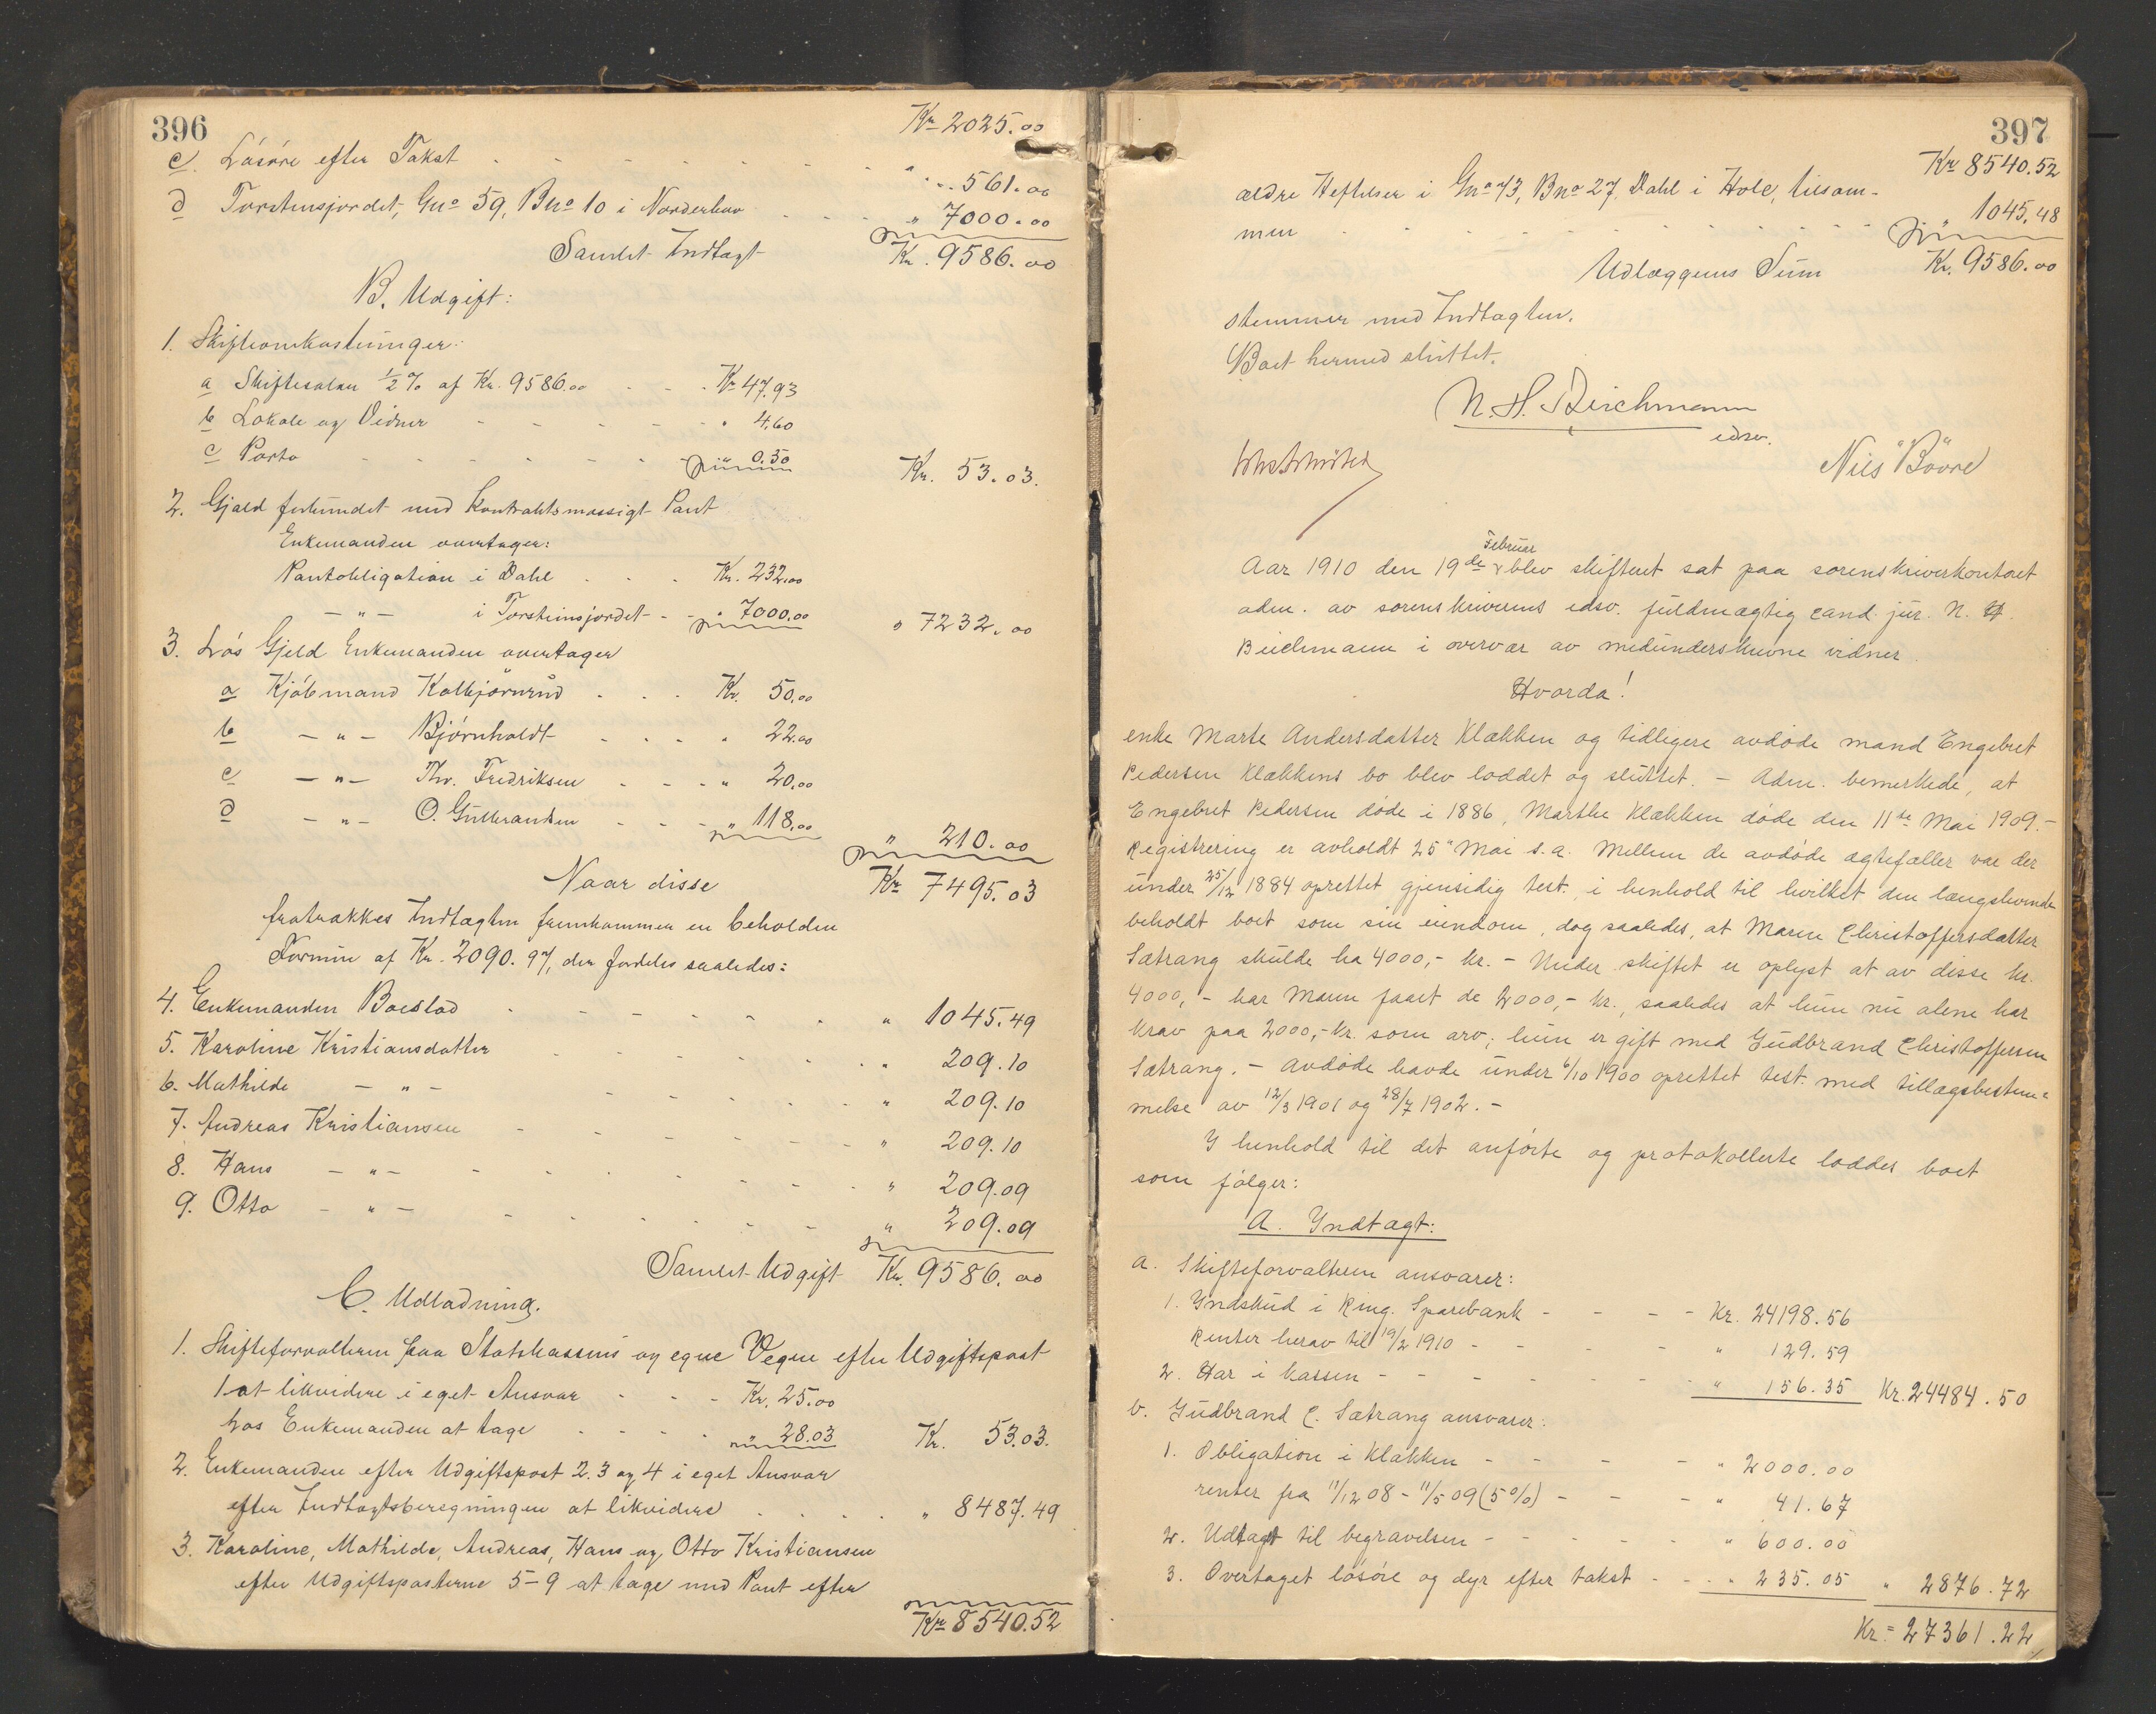 396
Kr 2025.00
c. Løsøre efter Takst - - - - - " 561.00
d Torstensjordet, Gno 59, Bno 10 i Norderhov - - - " 7000.00
Samlet Indtægt Kr. 9586.00
B. Udgift:
1. Skifteomkostninger:
a Skiftesalær ½ % af Kr. 9586.00 - - Kr 47.93
b Lokale og Vidner - - - - - " 4.60
c Porto - - - - - - " 0.50 Kr. 53.03.
2. Gjæld forbundet med Kontraktsmæssigt Pant
Enkemanden overtager:
Pantobligation i Dahl - - - Kr. 232.00
- " - i Torsteinsjordet - - " 7000.00 " 7232.00
3. Løs Gjeld Enkemanden overtager
a Kjøbmand Kolbjørnrud - - - Kr. 50.00
b - " - Bjørnholdt - - - - " 22.00
c - " - Thv. Fredriksen - - - " 20.00
d - " - O. Gulbransen - - - " 118.00 " 210.00
Naar disse Kr 7495.03
fratrækkes Indtægten fremkommer en beholden
Formue af Kr. 2090.97, der fordeles saaledes:
4. Enkemanden Boeslod - - - - - - " 1045.49
5. Karoline Kristiansdatter - - - - - " 209.10
6. Mathilde - " - - - - - - " 209.10
7. Andreas Kristiansen - - - - - - " 209.10
8. Hans - " - - - - - - " 209.09
9. Otto - " - - - - - - " 209.09
Samlet Udgift Kr. 9586.00
C. Udlodning.
1. Skifteforvalteren paa Statskassens og egne Vegne efter Udgiftspost
1 at likvidere i eget Ansvar - - - Kr. 25.00
hos Enkemanden at tage - - - - " 28.03 Kr. 53.03.
2. Enkemanden efter Udgiftspost 2.3 og 4 i eget Ansvar
efter Indtægtsberegningen at likvidere - - - - " 8487.49
3. Karoline, Mathilde, Andreas, Hans og Otto Kristiansen
efter Udgiftsposterne 5-9 at tage med Pant efter
Kr 8540.52
397
Kr 8540.52
ældre Heftelser i Gno 73, Bno 27, Dahl i Hole, tilsam-
men - - - - - - - - - - - " 1045.48
Udlæggenes Sum Kr. 9586.00
stemmer med Indtægten.
Boet hermed sluttet.
N. H. Beichmann
edsv.
Nils Bøvre
Aar 1910 den 19de Februar blev skifteret sat paa sorenskriverkontoret
adm. av sorenskriverens edsv. fuldmægtig cand. jur. N. H.
Beichmann i overvær av medunderskrevne vidner.
Hvorda!
enke Marte Andersdatter Klækken og tidligere avdøde mand Engebret
Pedersen Klækkens bo blev loddet og sluttet. - Adm. bemerkede, at
Engebret Pedersen døde i 1886, Marthe Klækken døde den 11te Mai 1909. -
Registrering er avholdt 25" Mai s.a. Mellem de avdøde ægtefæller var der
under 25/12 1884 oprettet gjensidig test. i henhold til hvilket den længstlevende
beholdt boet som sin eiendom, dog saaledes, at Maren Christoffersdatter
Sætrang skulde ha 4000,- kr. - Under skiftet er oplyst at av disse kr.
4000,- har Maren faaet de 2000,- kr., saaledes at hun nu alene har
krav paa 2000,- kr. som arv; hun er gift med Gudbrand Christoffersen
Sætrang. - Avdøde havde under 6/10 1900 oprettet test. med tillægsbestem=
melse av 12/3 1901 og 28/7 1902. -
I henhold til det anførte og protokollerte loddes boet
som følger:
A. Indtægt:
a. Skifteforvalteren ansvarer:
1. Indskud i Ring. Sparebank - - - - Kr. 24198.56
Renter herav til 19/2 1910 - - - - " 129.59
2. Har i kassen - - - - - - - " 156.35 Kr. 24484.50
b. Gudbrand C. Sætrang ansvarer:
1. Obligation i Klækken - - - - " 2000.00
renter fra 11/12 08 - 11/5 09 (5 %) - - - " 41.67
2. Udtagt til begravelsen - - - - " 600.00
3. Overtaget løsøre og dyr efter takst - - " 235.05 " 2876.72
Kr. = 27361.22